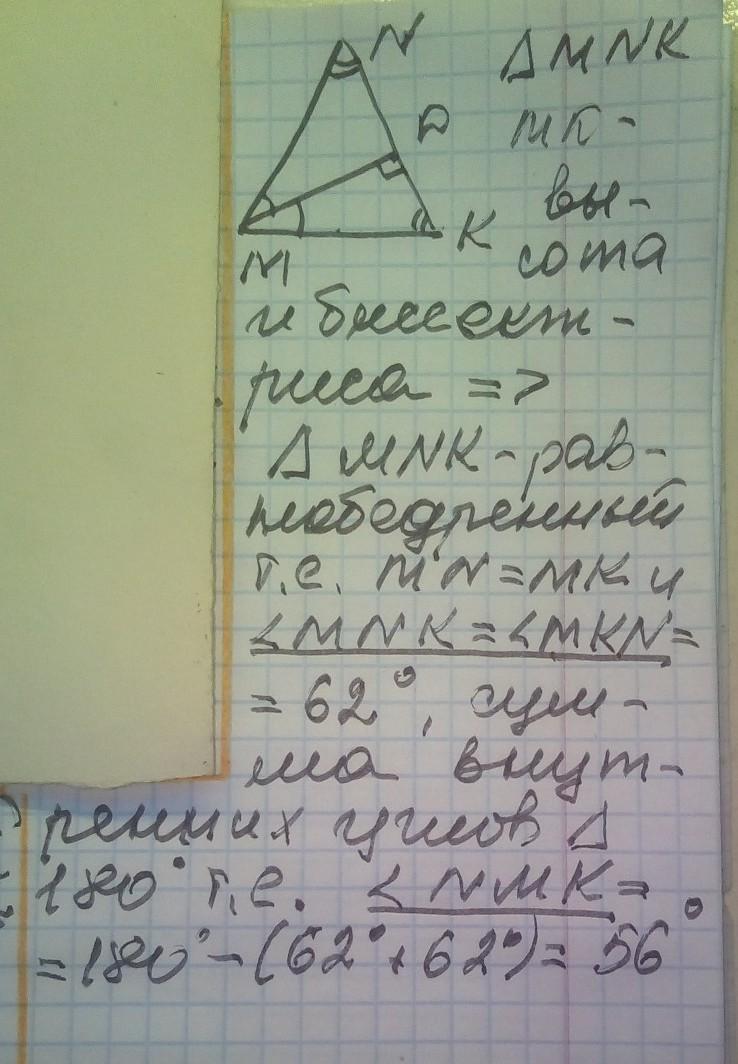 N
△MNK
D
MD -
вы-
K
сота
M
и биссект-
риса =>
△ MNK - рав-
нобедренный
т.е. MN = MK и
∠MNK = ∠MKN =
= 62°, сум-
ма внут-
ренних углов △
180° т.е. ∠NMK =
= 180° - (62° + 62°) = 56°